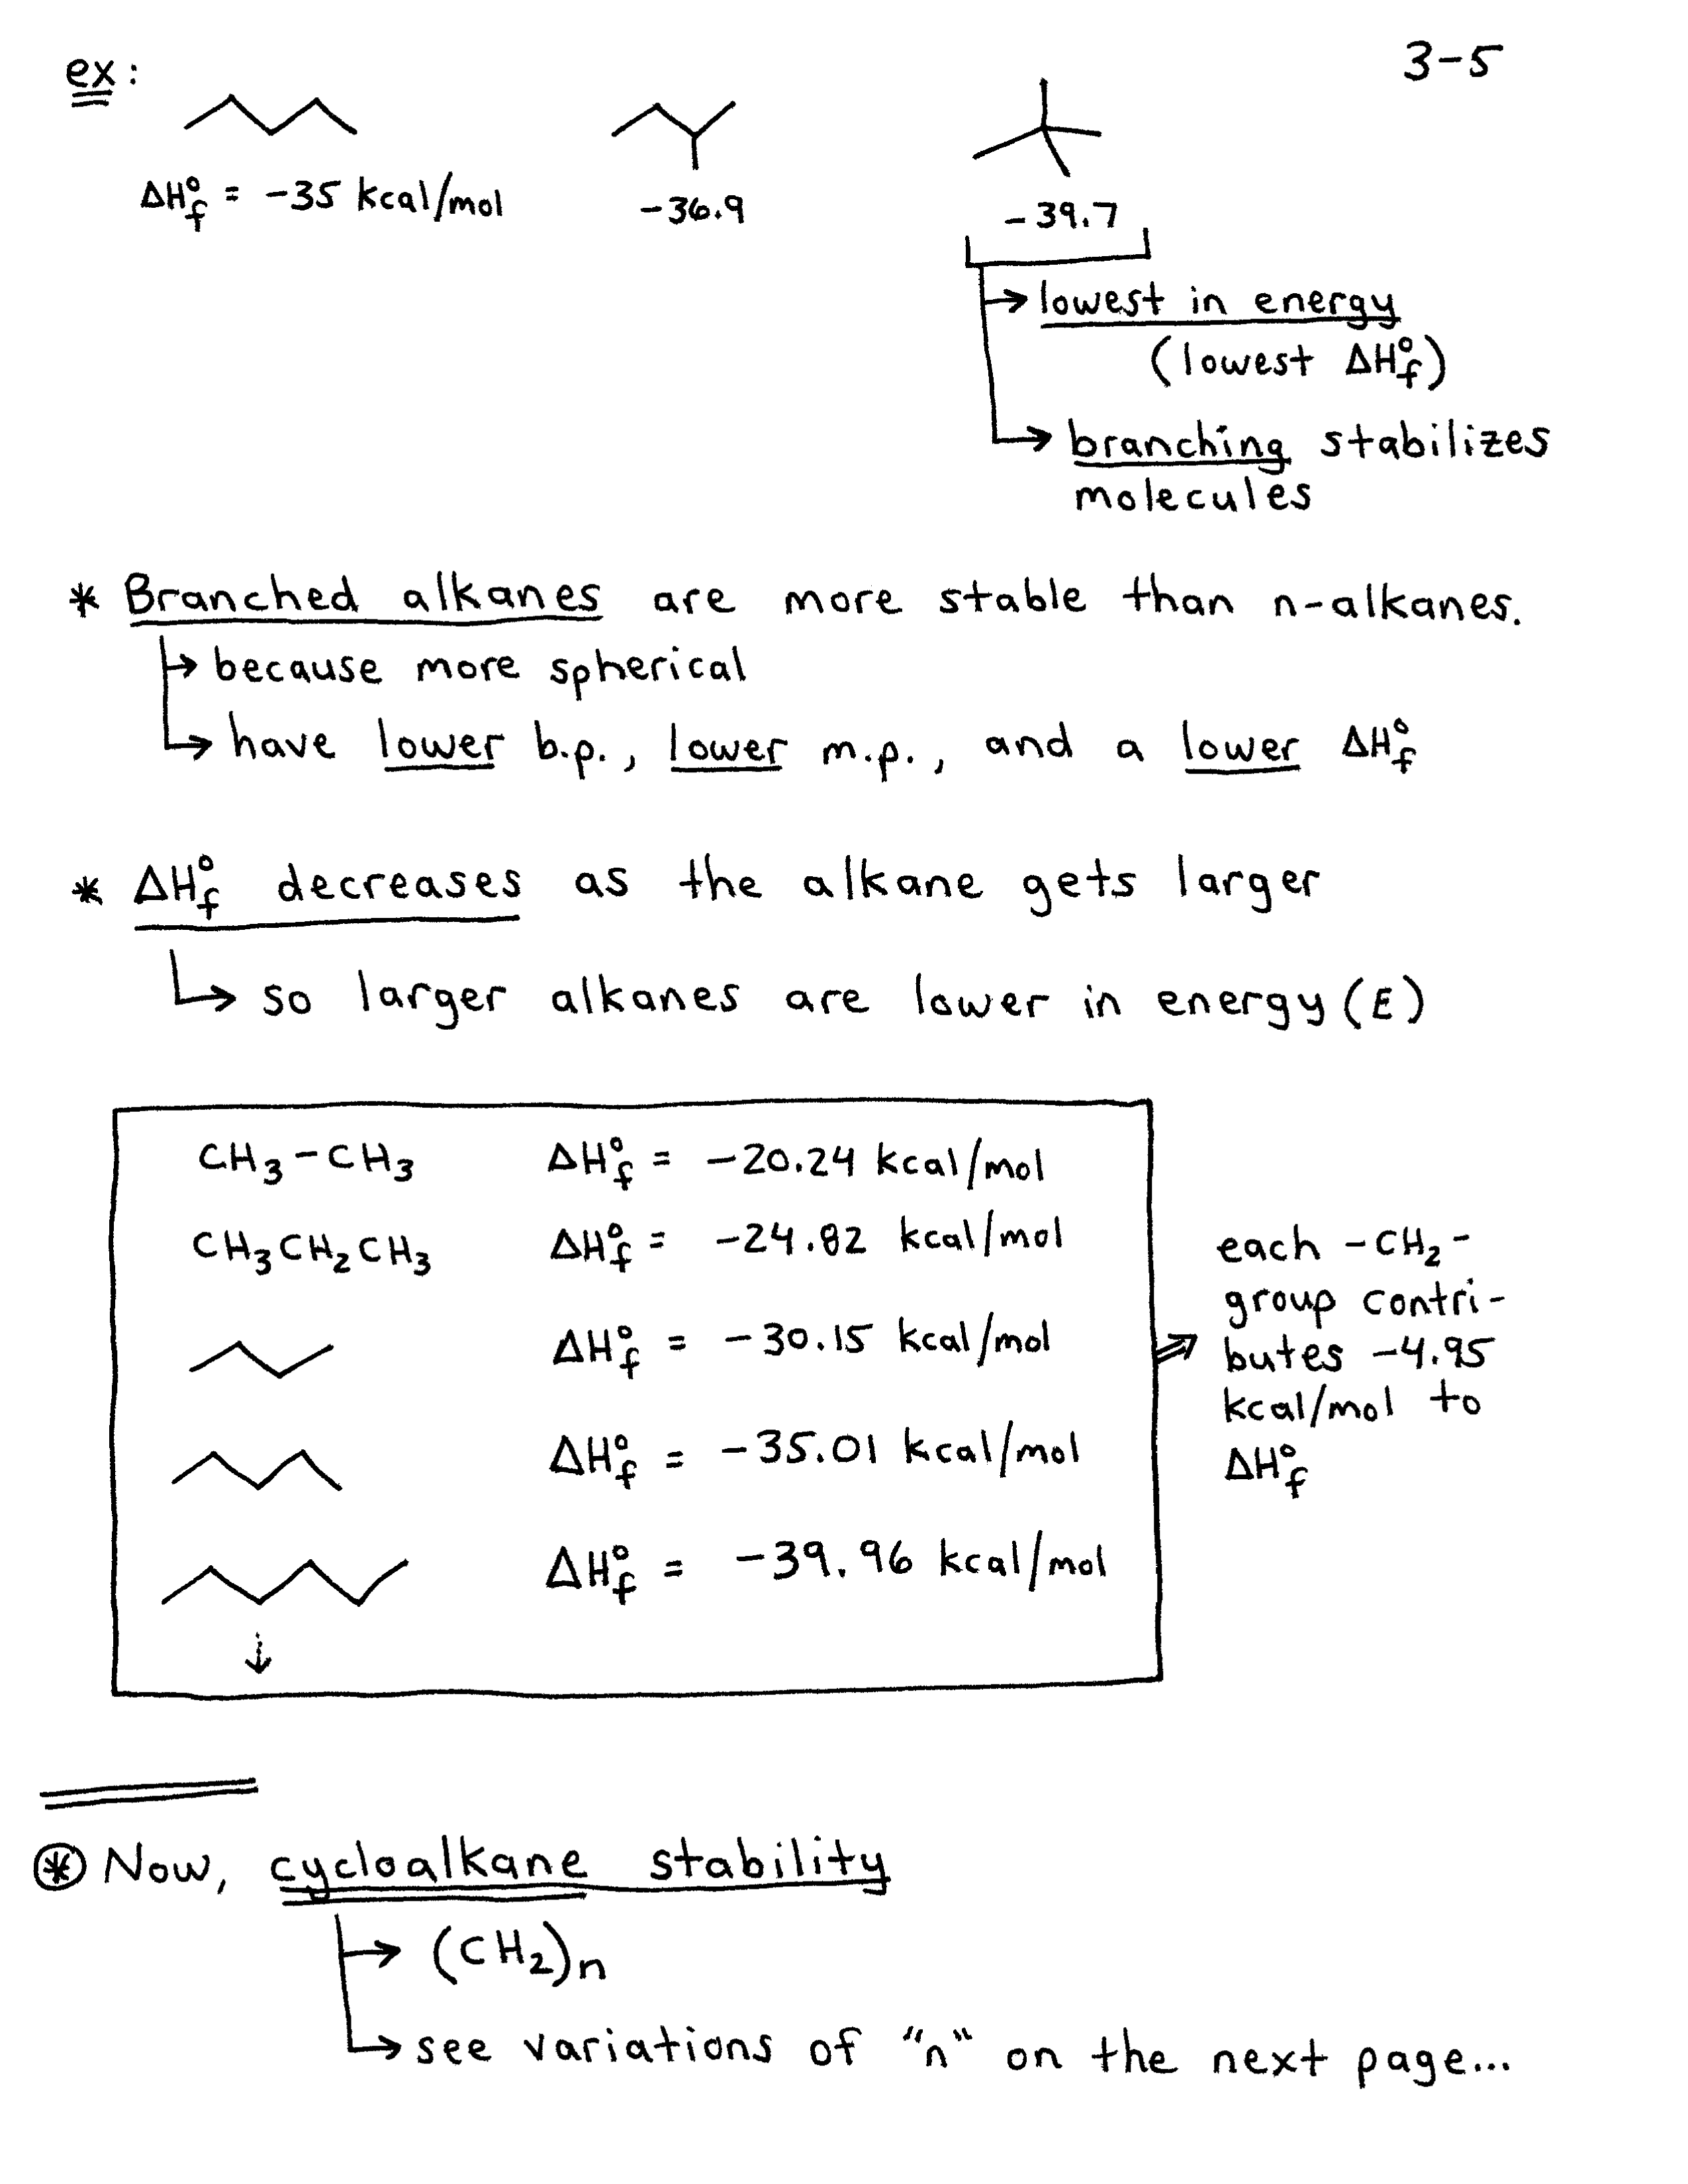 ex: 3-5
ΔH°f = -35 kcal/mol -36.9 -39.7
→ lowest in energy
(lowest ΔH°f)
→ branching stabilizes
molecules
* Branched alkanes are more stable than n-alkanes.
→ because more spherical
→ have lower b.p., lower m.p., and a lower ΔH°f
* ΔH°f decreases as the alkane gets larger
→ so larger alkanes are lower in energy (E)
CH₃-CH₃ ΔH°f = -20.24 kcal/mol
CH₃CH₂CH₃ ΔH°f = -24.82 kcal/mol
ΔH°f = -30.15 kcal/mol
ΔH°f = -35.01 kcal/mol
ΔH°f = -39.96 kcal/mol
↓
⇒ each -CH₂-
group contri-
butes -4.95
kcal/mol to
ΔH°f
⊛ Now, cycloalkane stability
→ (CH₂)n
→ see variations of "n" on the next page...